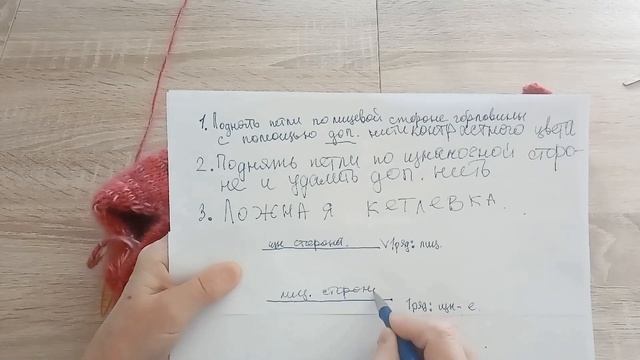 1. Поднять петли по лицевой стороне горловины
с помощью доп. нити контрастного цвета
2. Поднять петли по изнаночной сторо-
не и удалить доп. нить
3. Ложная кетлевка.
изн сторона. V 1ряд: лиц.
лиц. сторона 1ряд: изн-е